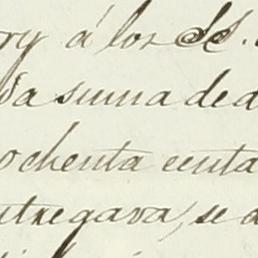 ry á los SS.
da suma de d
ochenta centa
ntregava, se d